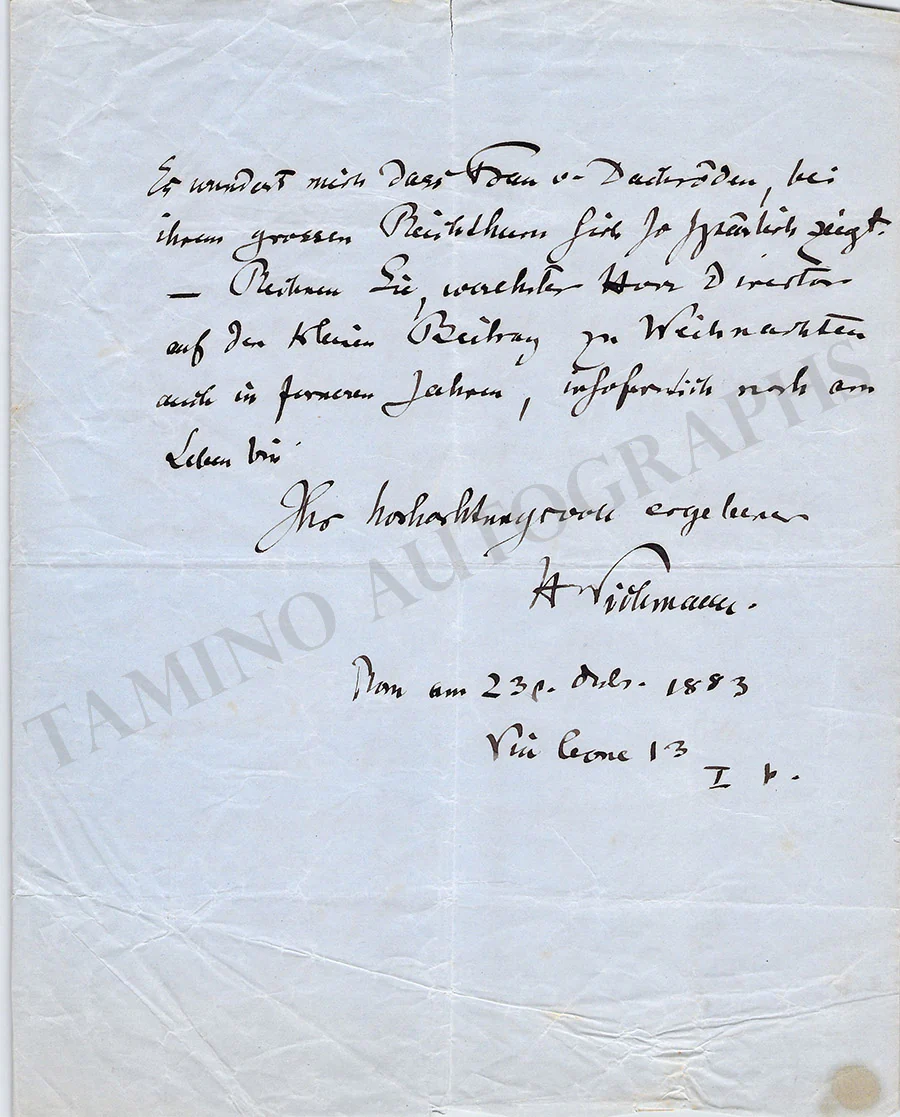 Es wundert mich dass Frau v. Dachröden, bei
ihrem grossen Reichthum sich so spärlich zeigt.
— Rechnen Sie, werthester Herr Director
auf den kleinen Beitrag zu Weihnachten
auch in ferneren Jahren, insofern ich noch am
Leben bin
Ihr hochachtungsvoll ergebener
H Wichmann.
Rom am 23 . 1883
Via Leone 13
I p.
TAMINO AUTOGRAPHS